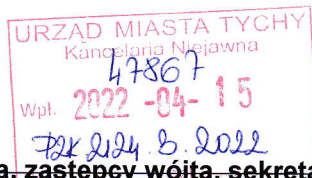 URZĄD MIASTA TYCHY
Kancelaria Niejawna
47867
Wpł. 2022 -04- 15
PZK 2124.3.2022
a, zastępcy wójta, sekreta